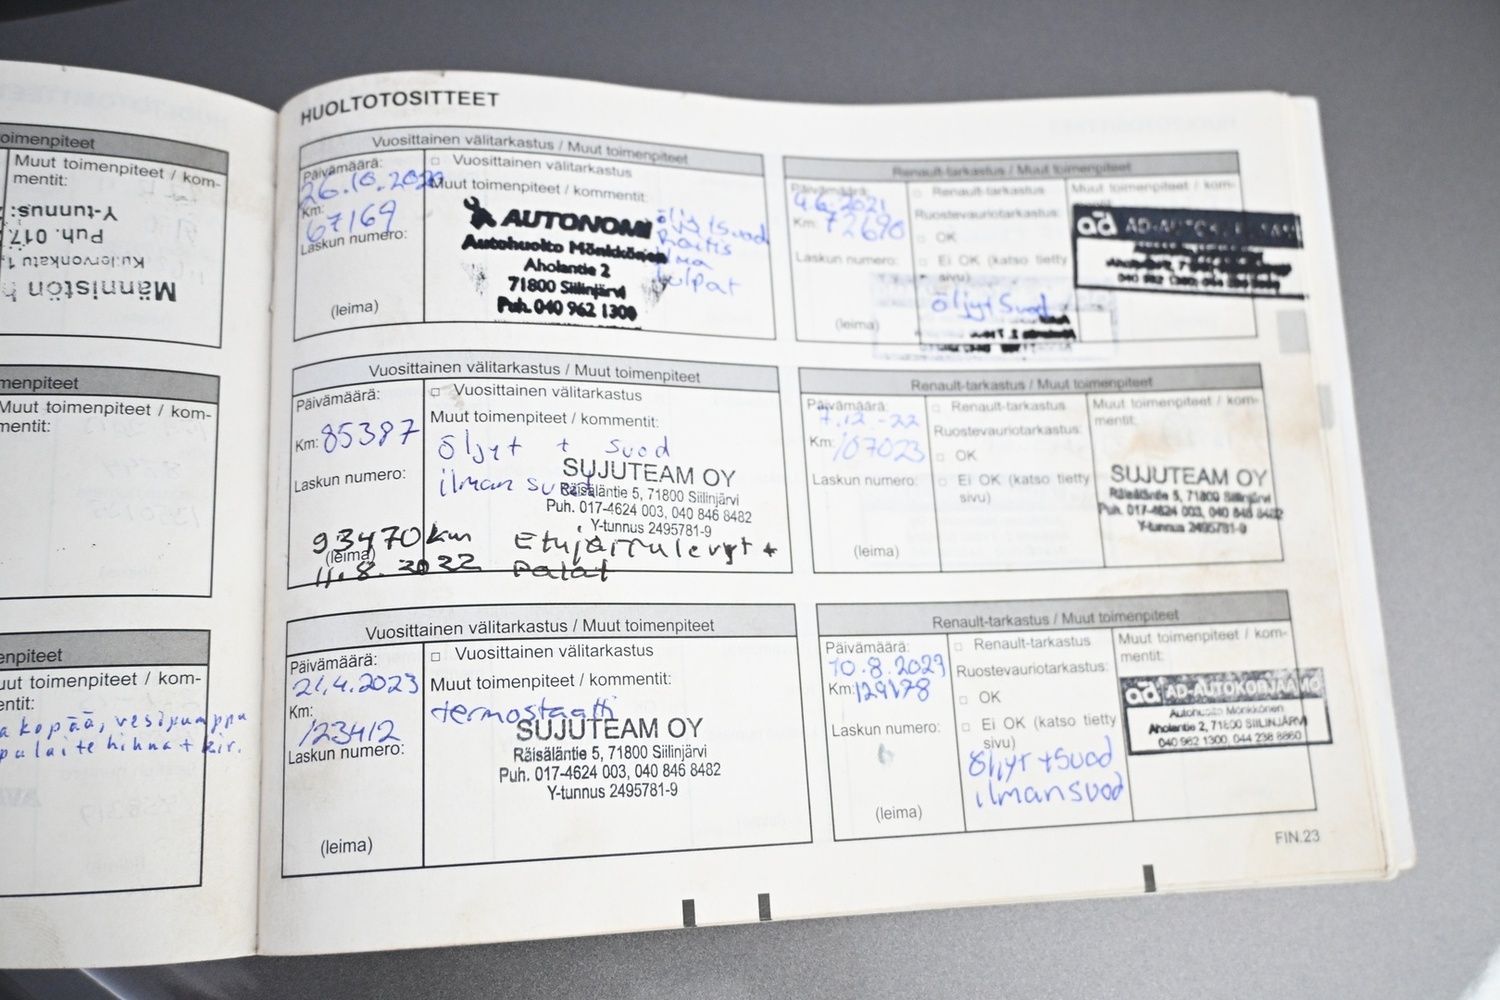 oimenpiteet
Muut toimenpiteet / kom-
mentit:
Y-tunnus:
Puh. 017.
Kullervonkatu 1,
Männistön h
menpiteet
Muut toimenpiteet / kom-
mentit:
enpiteet
uut toimenpiteet / kom-
entit:
a kopää, vesipumppu
palaite hihna + kir.
HUOLTOTOSITTEET
Vuosittainen välitarkastus / Muut toimenpiteet
Päivämäärä:
26.10.2020
Km:
67169
Laskun numero:
(leima)
□ Vuosittainen välitarkastus
Muut toimenpiteet / kommentit:
AUTONOMI
Autohuolto Mönkkönen
Aholantie 2
71800 Siilinjärvi
Puh. 040 962 1300
öljyt suod
Raitis
ilma
tulpat
Renault-tarkastus / Muut toimenpiteet
Päivämäärä:
4.6.2021
Km: 72690
Laskun numero:
(leima)
□ Renault-tarkastus
Ruostevauriotarkastus:
□ OK
□ Ei OK (katso tietty
sivu)
öljyt suod
Muut toimenpiteet / kom-
mentit:
ad AD-AUTOKORJAAMO
040 962 1300, 044 238 8860
Vuosittainen välitarkastus / Muut toimenpiteet
Päivämäärä:
Km: 85387
Laskun numero:
93470 km
(leima)
11.8.2022
□ Vuosittainen välitarkastus
Muut toimenpiteet / kommentit:
öljyt + suod
ilman suod
SUJUTEAM OY
Räisäläntie 5, 71800 Siilinjärvi
Puh. 017-4624 003, 040 846 8482
Y-tunnus 2495781-9
Etujarrulevyt +
Palat
Renault-tarkastus / Muut toimenpiteet
Päivämäärä:
7.12.-22
Km: 107023
Laskun numero:
(leima)
□ Renault-tarkastus
Ruostevauriotarkastus:
□ OK
□ Ei OK (katso tietty
sivu)
Muut toimenpiteet / kom-
mentit:
SUJUTEAM OY
Räisäläntie 5, 71800 Siilinjärvi
Puh. 017-4624 003, 040 846 8482
Y-tunnus 2495781-9
Vuosittainen välitarkastus / Muut toimenpiteet
Päivämäärä:
21.4.2023
Km:
123412
Laskun numero:
(leima)
□ Vuosittainen välitarkastus
Muut toimenpiteet / kommentit:
termostaatti
SUJUTEAM OY
Räisäläntie 5, 71800 Siilinjärvi
Puh. 017-4624 003, 040 846 8482
Y-tunnus 2495781-9
Renault-tarkastus / Muut toimenpiteet
Päivämäärä:
10.8.2023
Km: 129178
Laskun numero:
(leima)
□ Renault-tarkastus
Ruostevauriotarkastus:
□ OK
□ Ei OK (katso tietty
sivu)
öljyt + suod
ilmansuod
Muut toimenpiteet / kom-
mentit:
ad AD-AUTOKORJAAMO
Autohuolto Mönkkönen
Aholantie 2, 71800 SIILINJÄRVI
040 962 1300, 044 238 8860
FIN.23